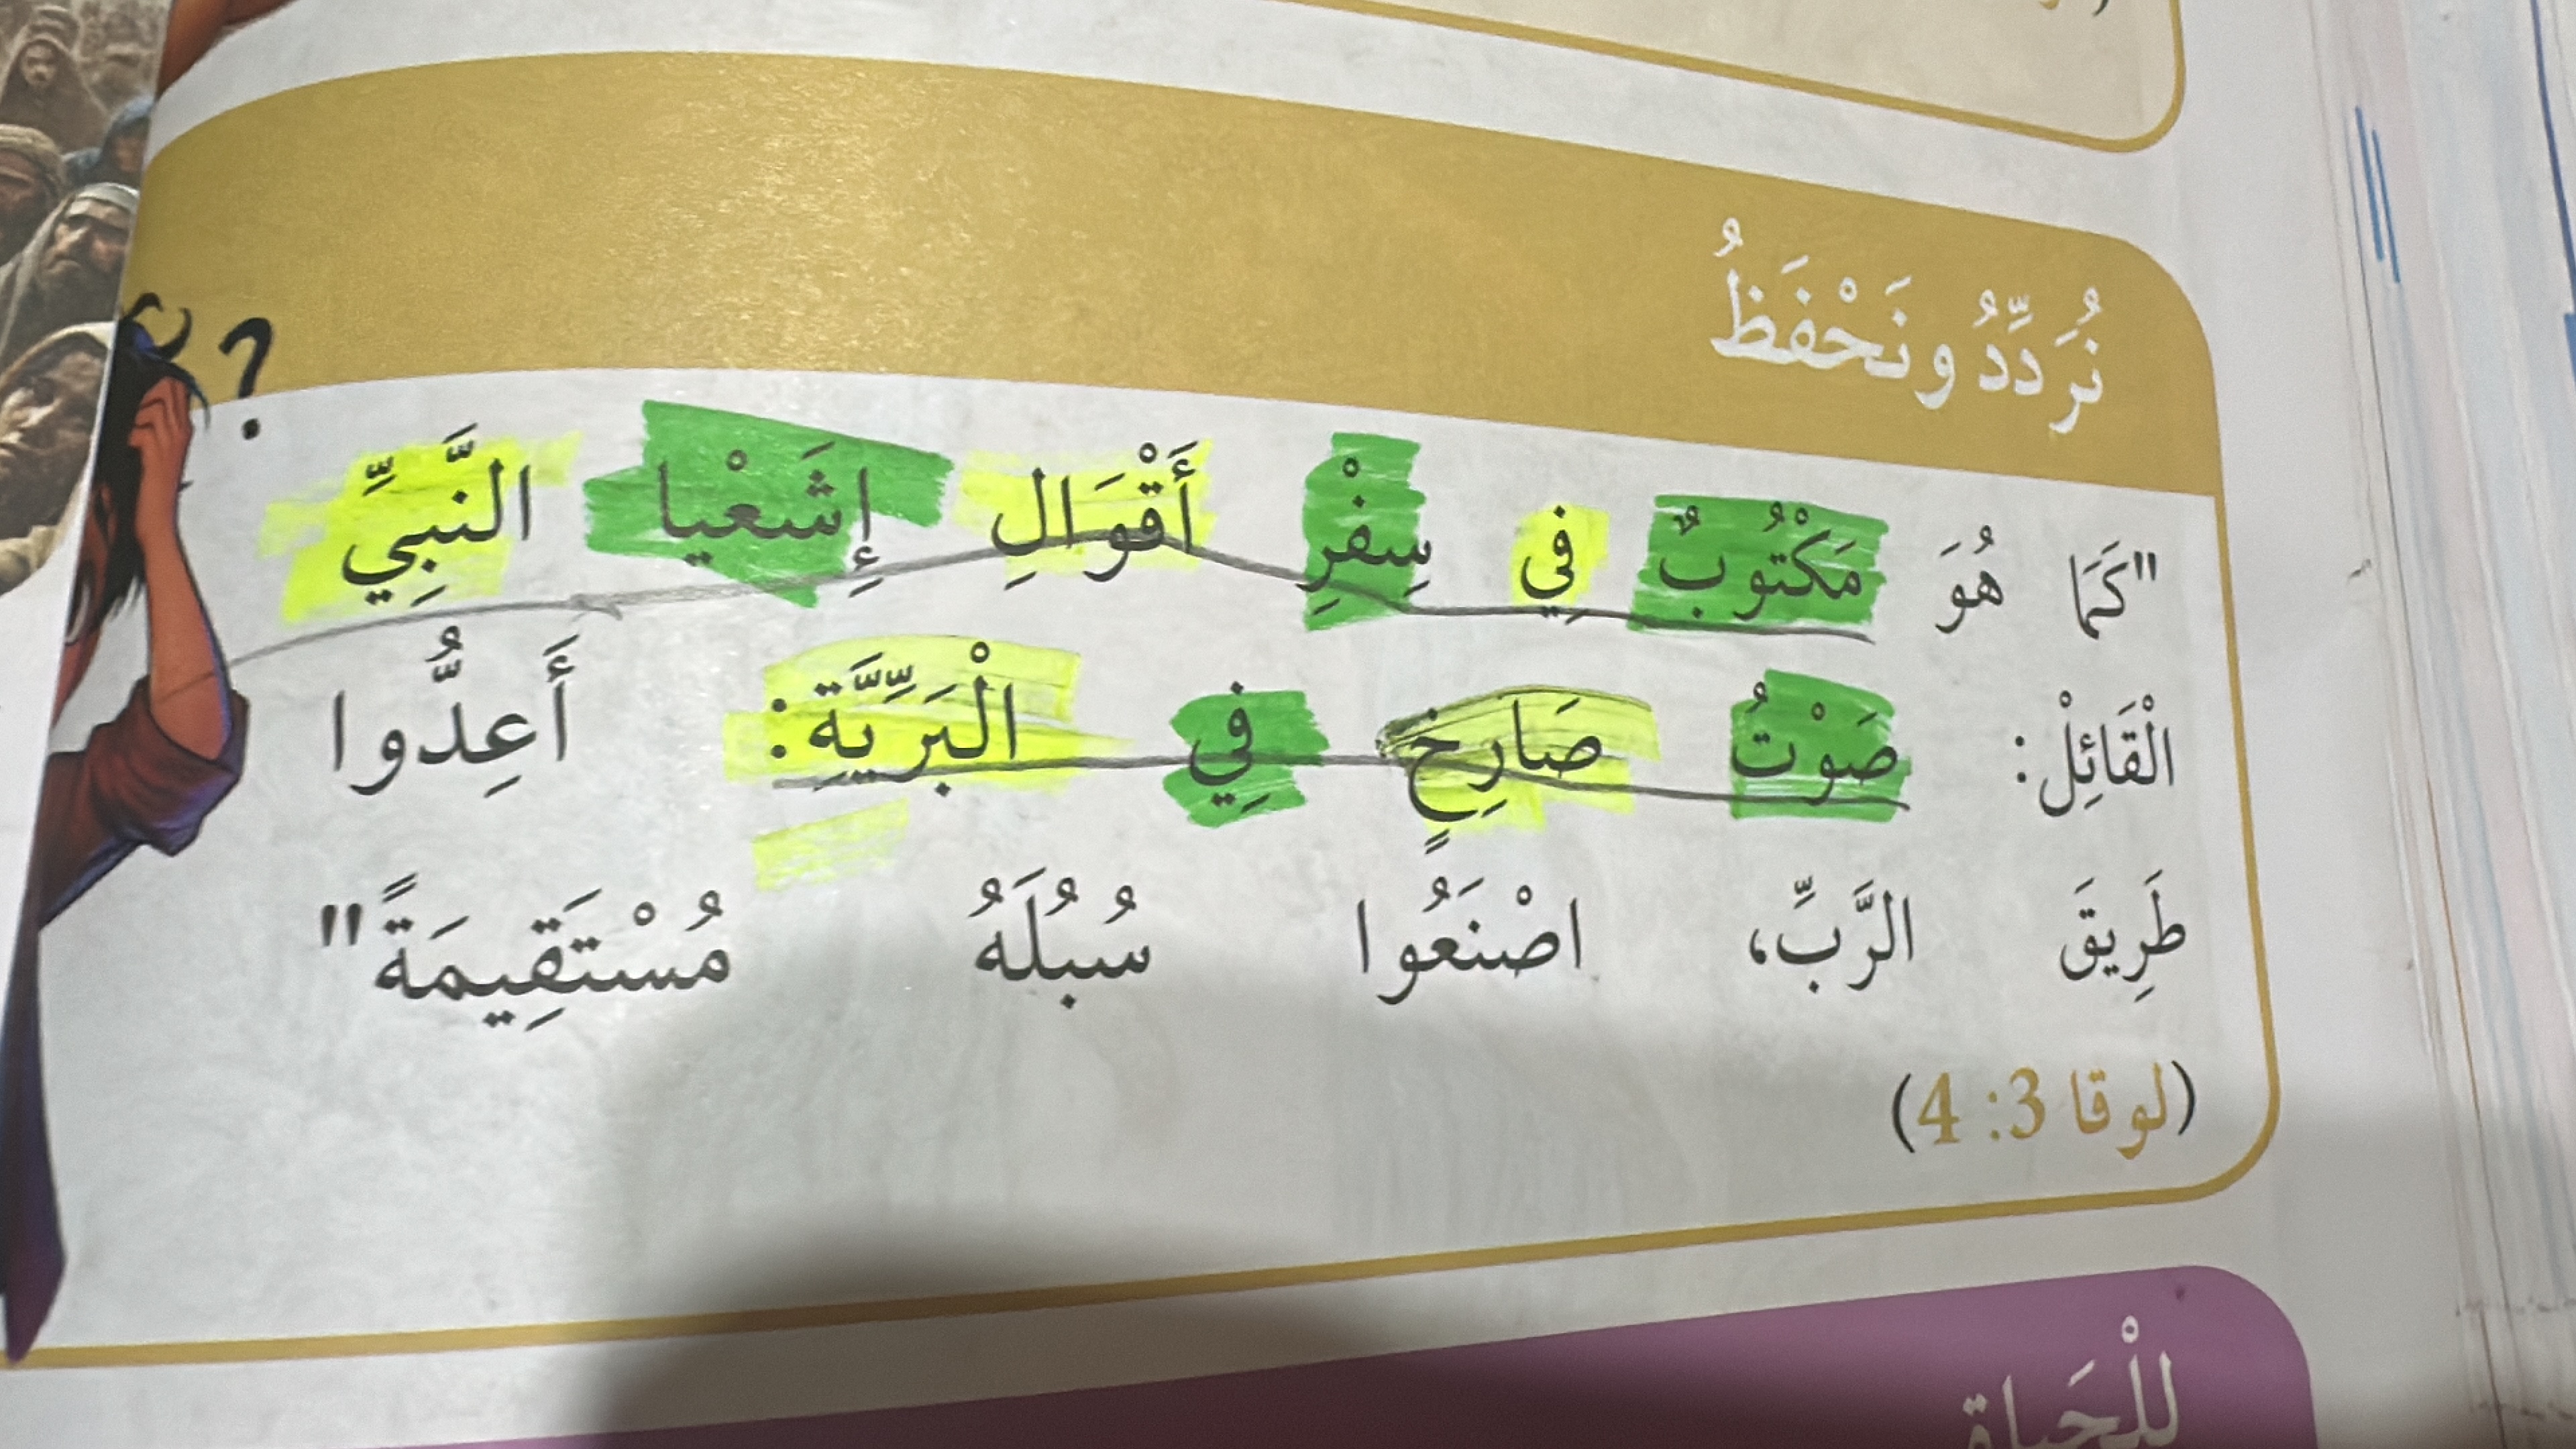 نُرَدِّدُ ونَحْفَظُ
?
"كَمَا هُوَ مَكْتُوبٌ فِي سِفْرِ أَقْوَالِ إِشَعْيا النَّبِيِّ
الْقَائِلْ: صَوْتُ صَارِخٍ فِي الْبَرِّيَّةِ: أَعِدُّوا
طَرِيقَ الرَّبِّ، اصْنَعُوا سُبُلَهُ مُسْتَقِيمَةً"
(لوقا 3: 4)
للْحَياة